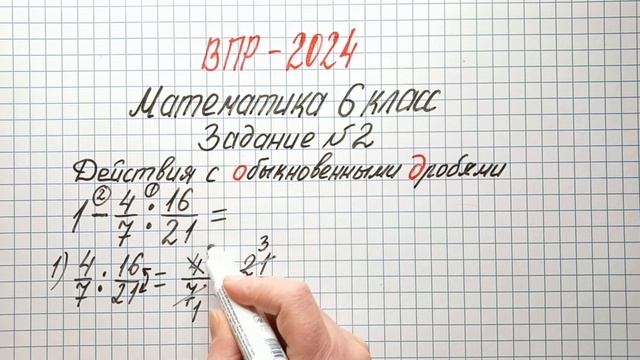 ВПР - 2024
Математика 6 класс
Задание №2
Действия с обыкновенными дробями
1 - 4/7 : 16/21 =
1) 4/7 : 16/21 = 4/7 21